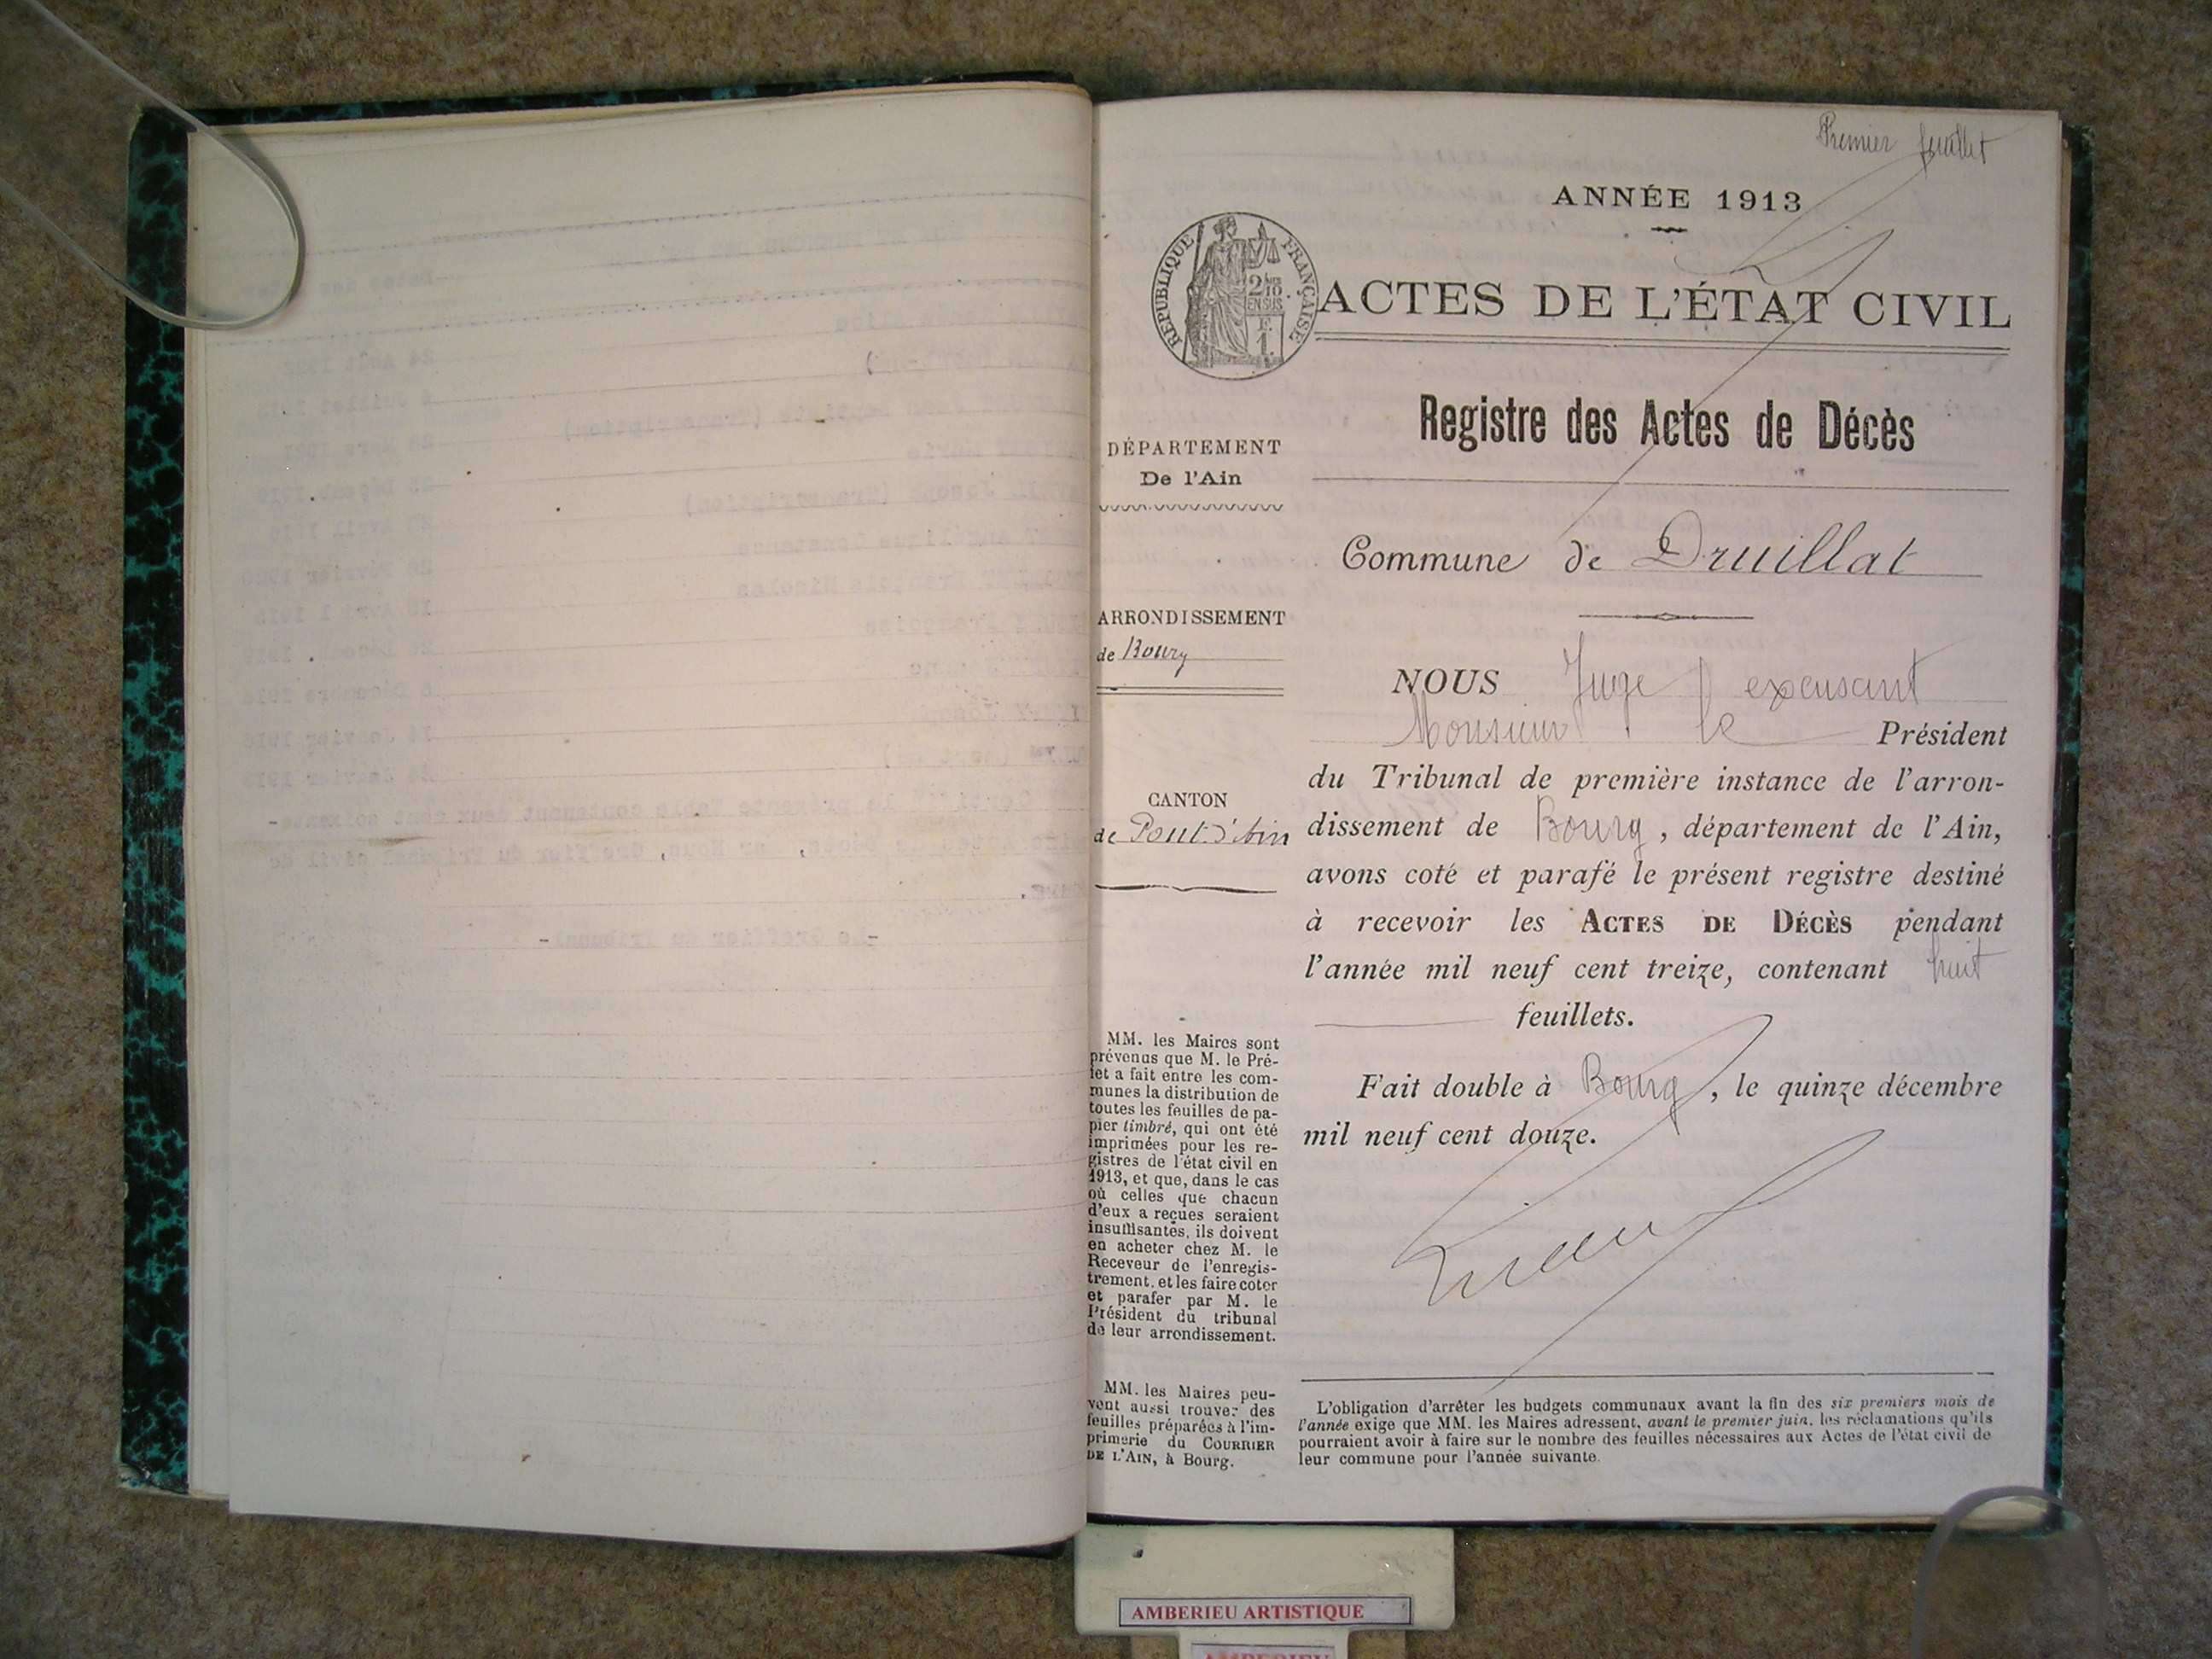 Premier feuillet
ANNÉE 1913
RÉPUBLIQUE FRANÇAISE
2/10 EN SUS
F. 1.
ACTES DE L'ÉTAT CIVIL
Registre des Actes de Décès
DÉPARTEMENT
De l'Ain
Commune de Druillat
ARRONDISSEMENT
de Bourg
CANTON
de Pont-d'Ain
NOUS Juge excusant
Monsieur le Président
du Tribunal de première instance de l'arron-
dissement de Bourg, département de l'Ain,
avons coté et parafé le présent registre destiné
à recevoir les ACTES DE DÉCÈS pendant
l'année mil neuf cent treize, contenant huit
feuillets.
Fait double à Bourg, le quinze décembre
mil neuf cent douze.
MM. les Maires sont
prévenus que M. le Pré-
fet a fait entre les com-
munes la distribution de
toutes les feuilles de pa-
pier timbré, qui ont été
imprimées pour les re-
gistres de l'état civil en
1913, et que, dans le cas
où celles que chacun
d'eux a reçues seraient
insuffisantes, ils doivent
en acheter chez M. le
Receveur de l'enregis-
trement, et les faire coter
et parafer par M. le
Président du tribunal
de leur arrondissement.
MM. les Maires peu-
vent aussi trouver des
feuilles préparées à l'im-
primerie du COURRIER
DE L'AIN, à Bourg.
L'obligation d'arrêter les budgets communaux avant la fin des six premiers mois de
l'année exige que MM. les Maires adressent, avant le premier juin, les réclamations qu'ils
pourraient avoir à faire sur le nombre des feuilles nécessaires aux Actes de l'état civil de
leur commune pour l'année suivante.
AMBERIEU ARTISTIQUE
AMBERIEU